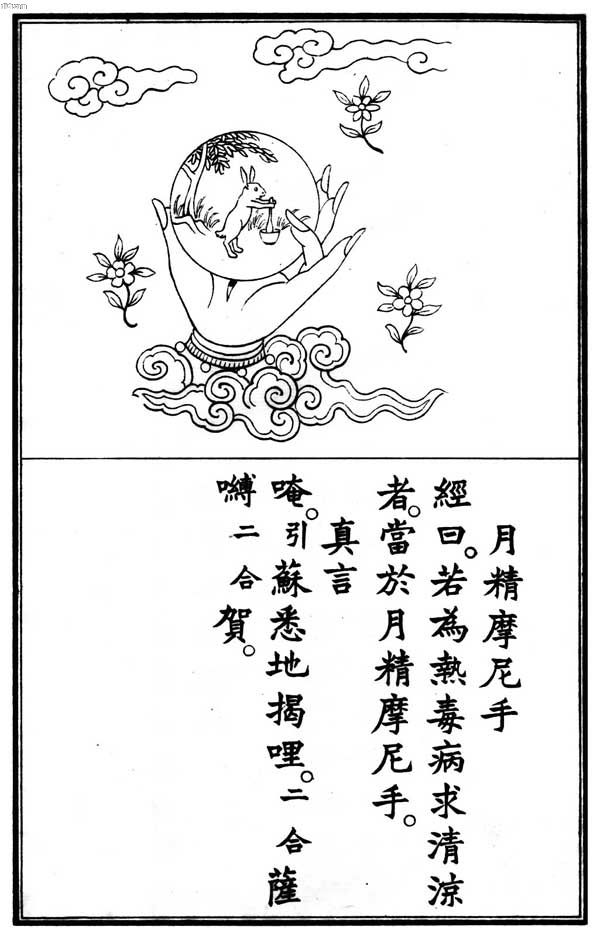 月精摩尼手
經曰。若為熱毒病求清涼
者。當於月精摩尼手。
真言
唵。引蘇悉地揭哩。二合薩
嚩二合賀。